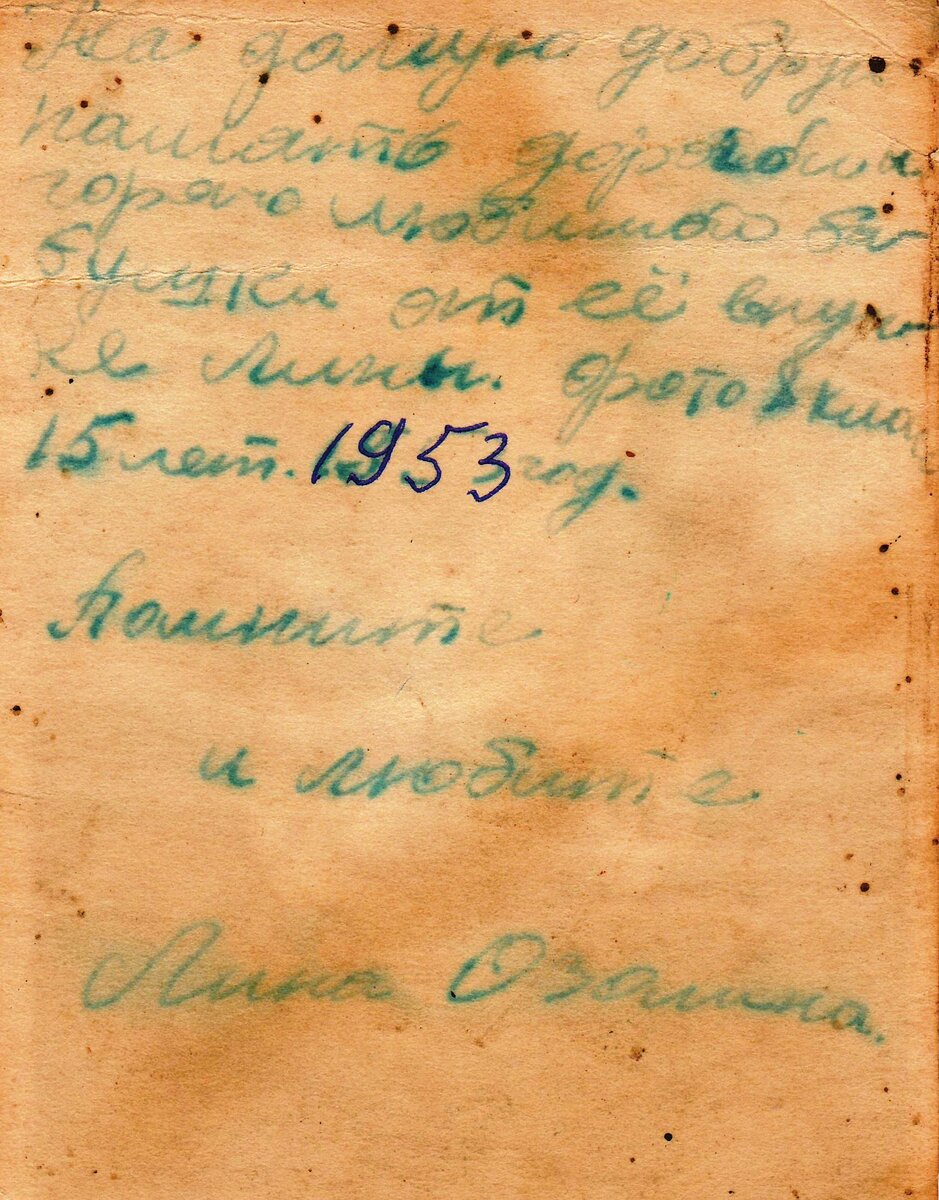 На долгую добрую
память дорогой и
горячо любимой ба
бушки от её внуч
ке Лины. Фото
15 лет. 1953 год.
Помните
и любите
Лина